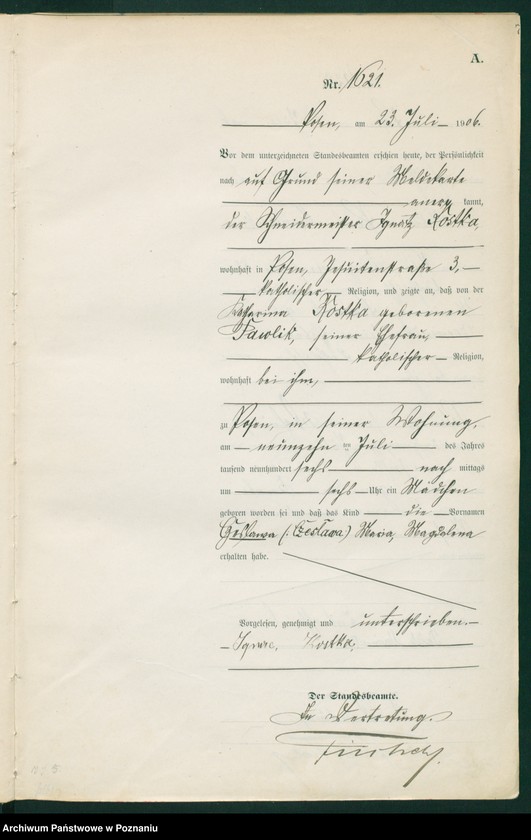 A.
Nr. 1621.
Posen, am 23. Juli 1906.
Vor dem unterzeichneten Standesbeamten erschien heute, der Persönlichkeit
nach auf Grund seiner Meldekarte
anerkannt,
der Schneidermeister Ignatz Kostka,
wohnhaft in Posen, Jesuitenstraße 3,
katholischer Religion, und zeigte an, daß von der
Katarina Kostka geborenen
Pawlik, seiner Ehefrau,
katholischer Religion,
wohnhaft bei ihm,
zu Posen, in seiner Wohnung,
am neunzehnten Juli des Jahres
tausend neunhundert sechs nach mittags
um sechs Uhr ein Mädchen
geboren worden sei und daß das Kind die Vornamen
(: Czesława) Maria, Magdalena
erhalten habe.
Vorgelesen, genehmigt und unterschrieben.
Kostka.
Der Standesbeamte.
In Vertretung.
Archiwum Państwowe w Poznaniu